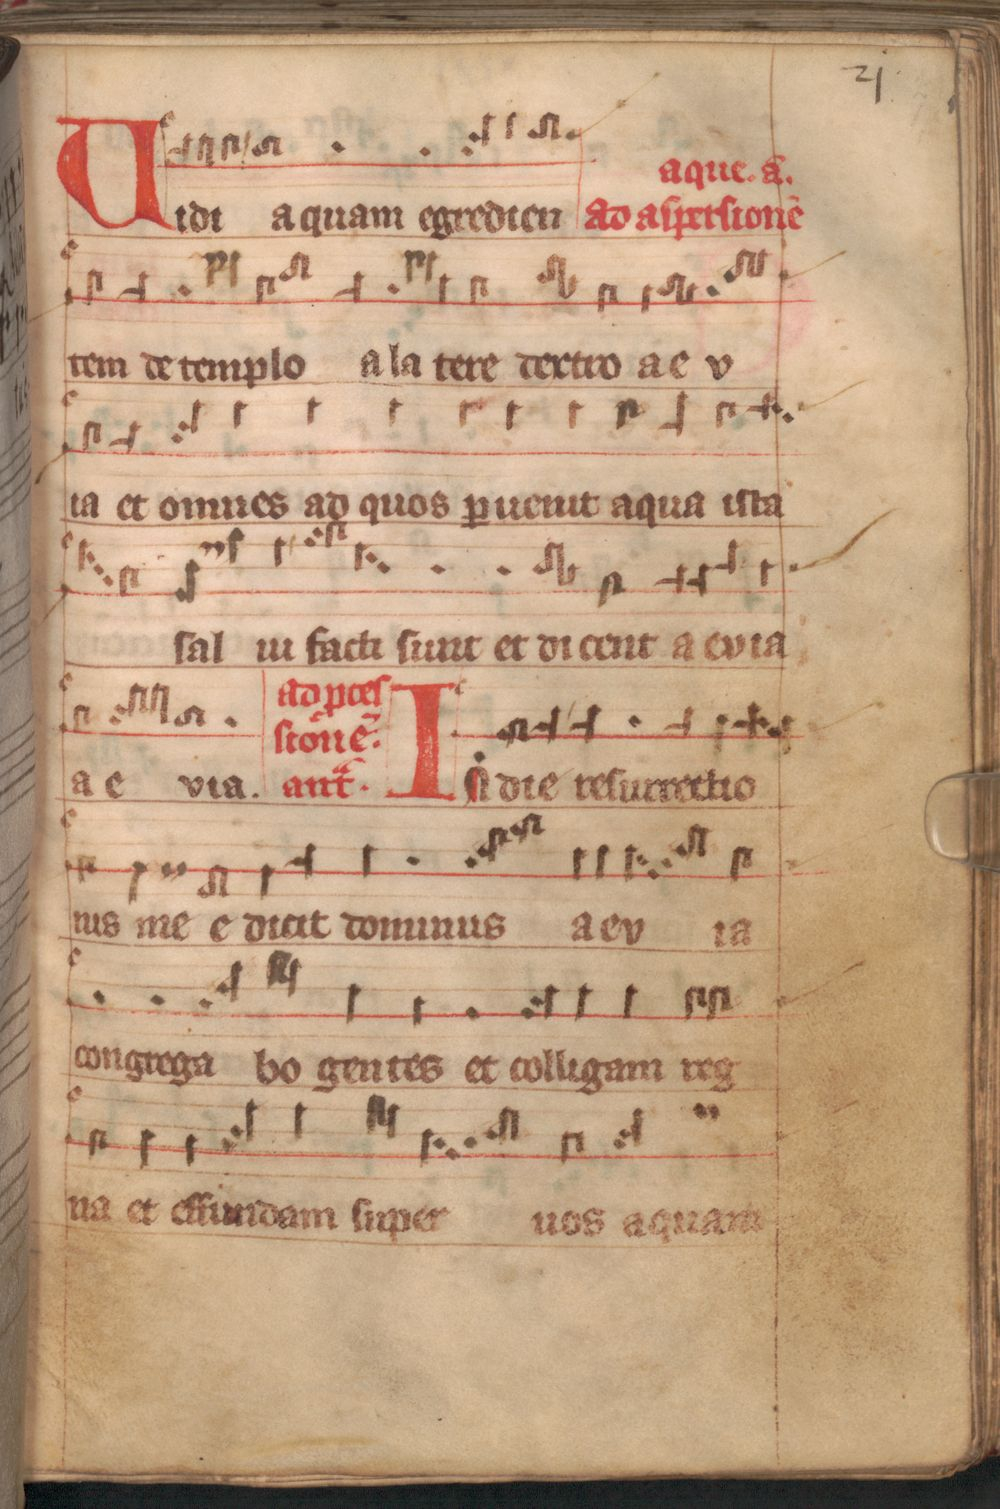 21
aque. a.
Uidi aquam egredien ad aspersionē
tem de templo a la tere dextro a e v
ia et omnes ad quos ꝑuenit aqua ista
sal ui facti sunt et di cent a e v ia
ad ꝓces
sionē.
a e via. ant. In die resurrectio
nis me e dicit dominus a e v ia
congrega bo gentes et colligam reg
na et effundam super uos aquam